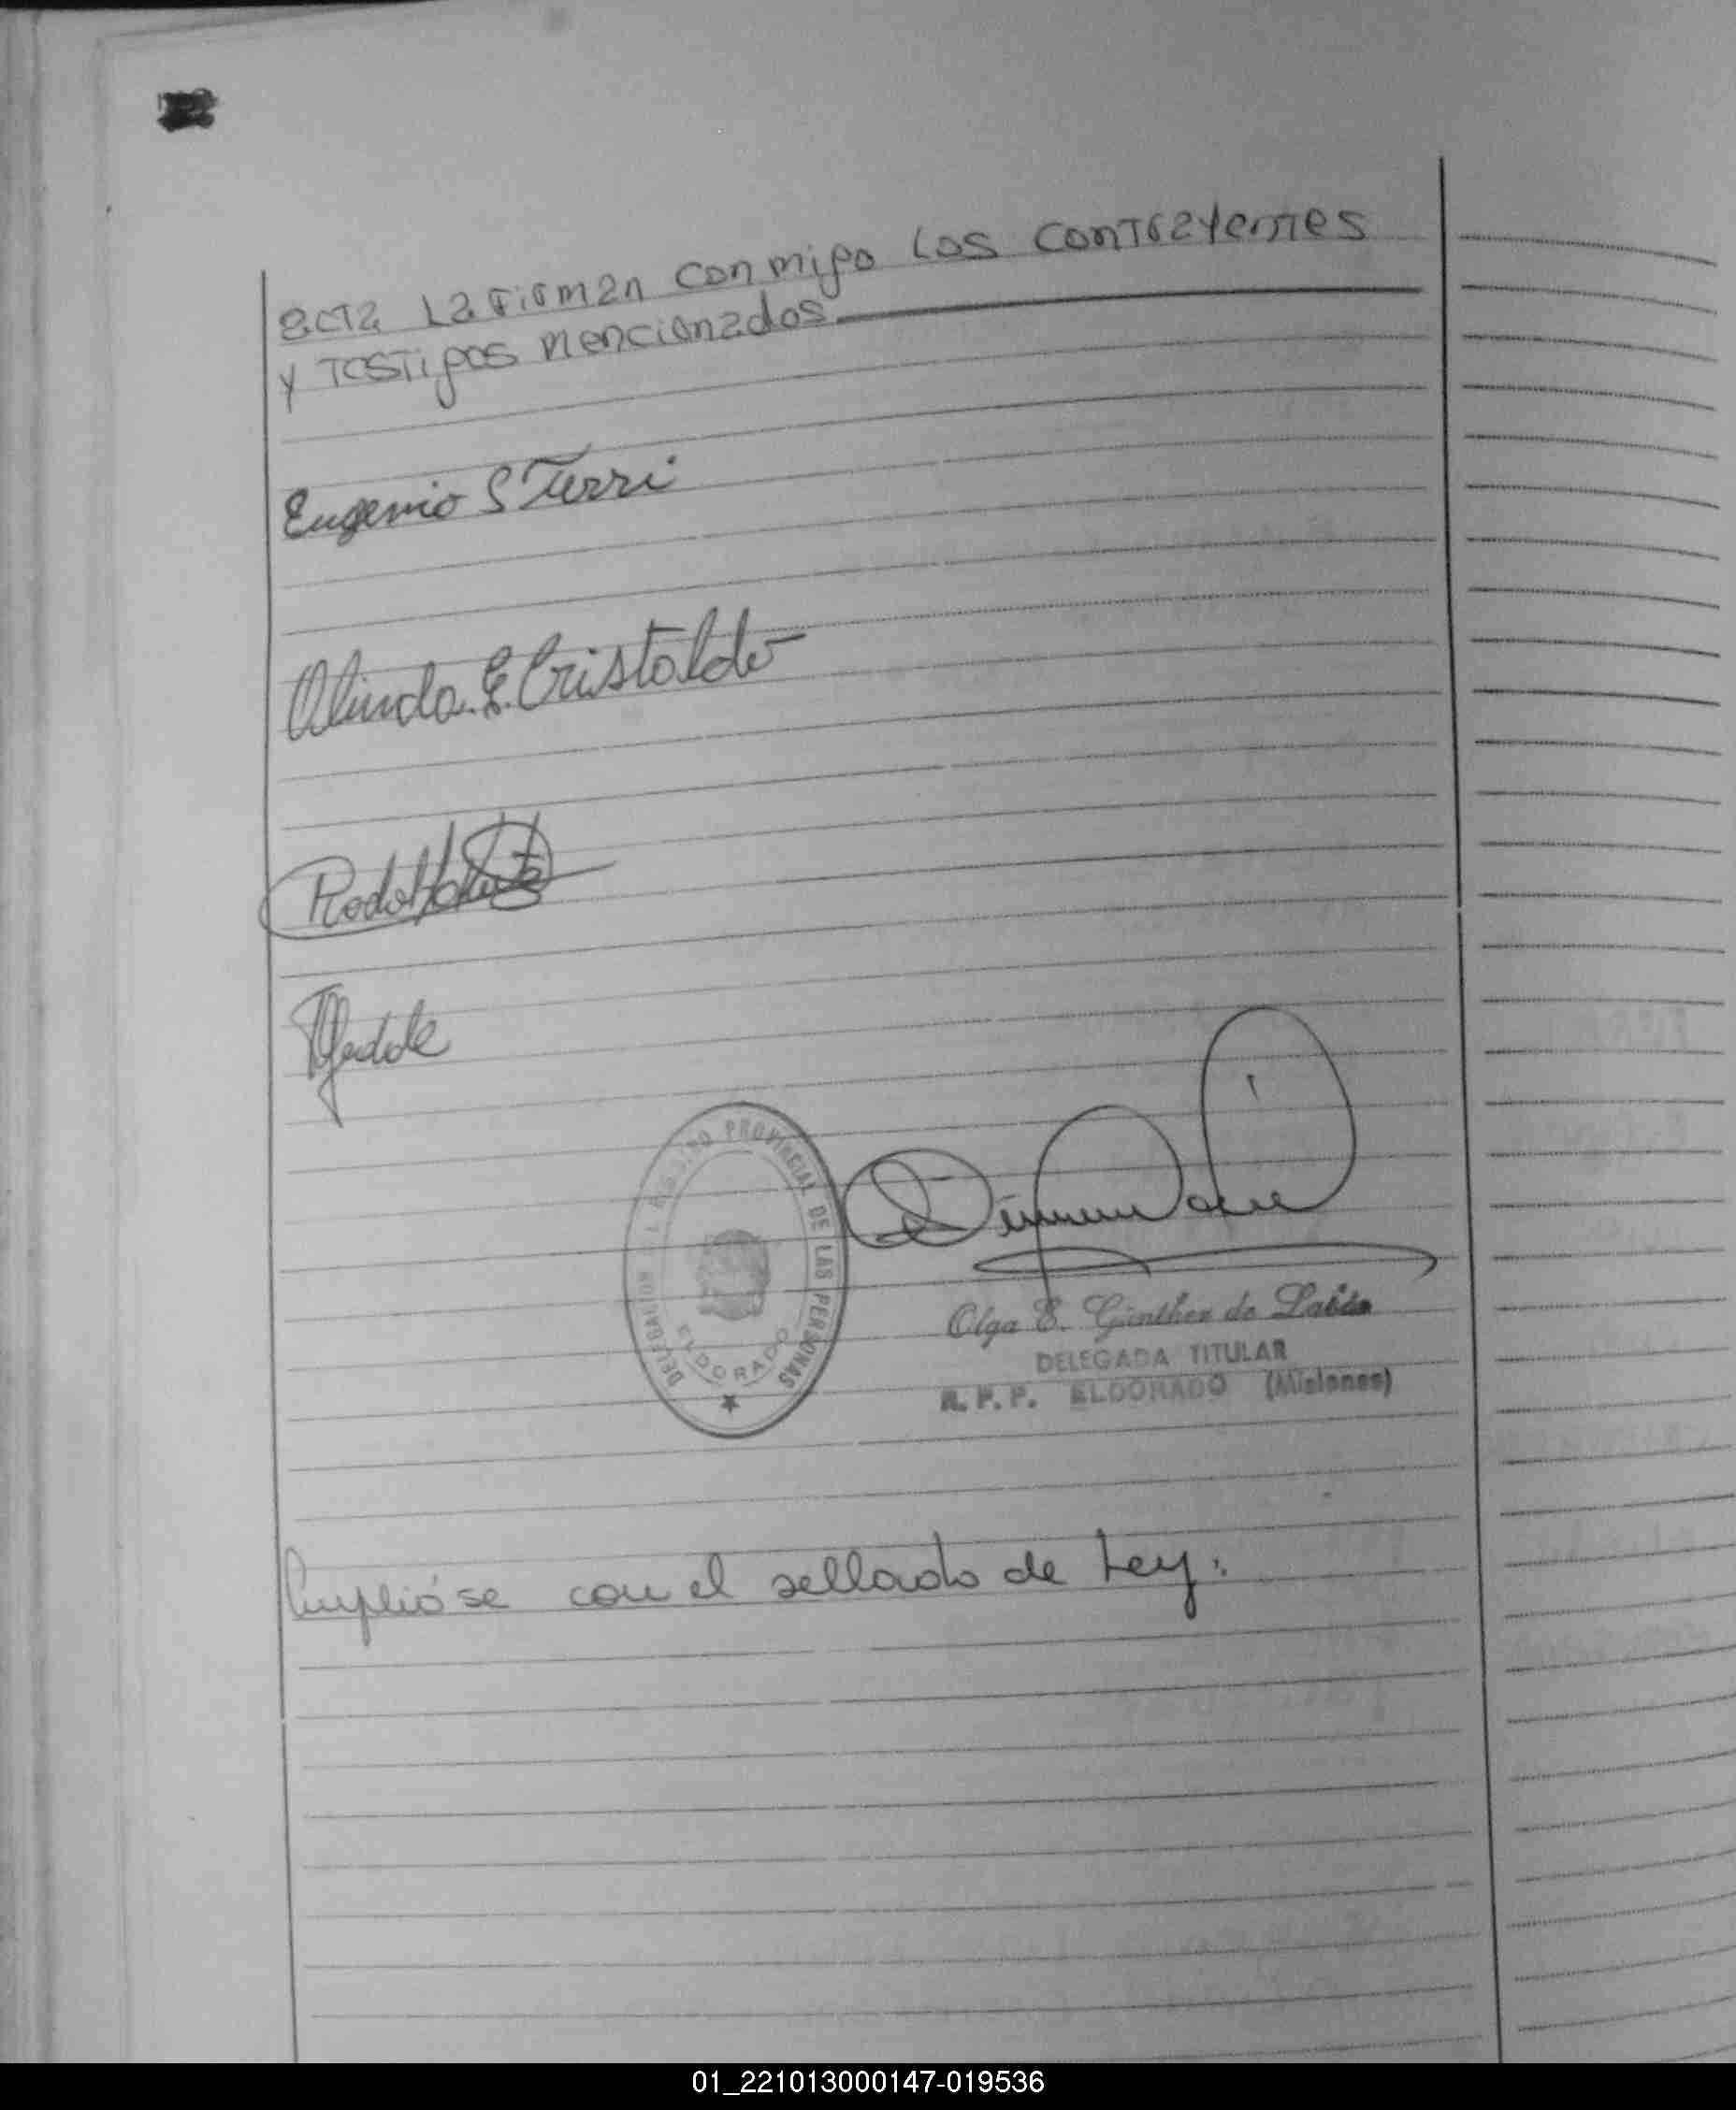 acta La firman conmigo los contrayentes
y Testigos mencionados
Eugenio S Terri
Olinda. E. Cristaldo
DELEGACION REGISTRO PROVINCIAL DE LAS PERSONAS
ELDORADO
Olga E. Günther de
DELEGADA TITULAR
R. P. P. ELDORADO (Misiones)
Cumplióse con el sellado de Ley.
01_221013000147-019536